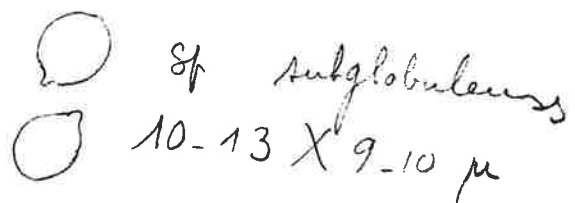 Sp subglobuleuses
10-13 X 9-10 µ